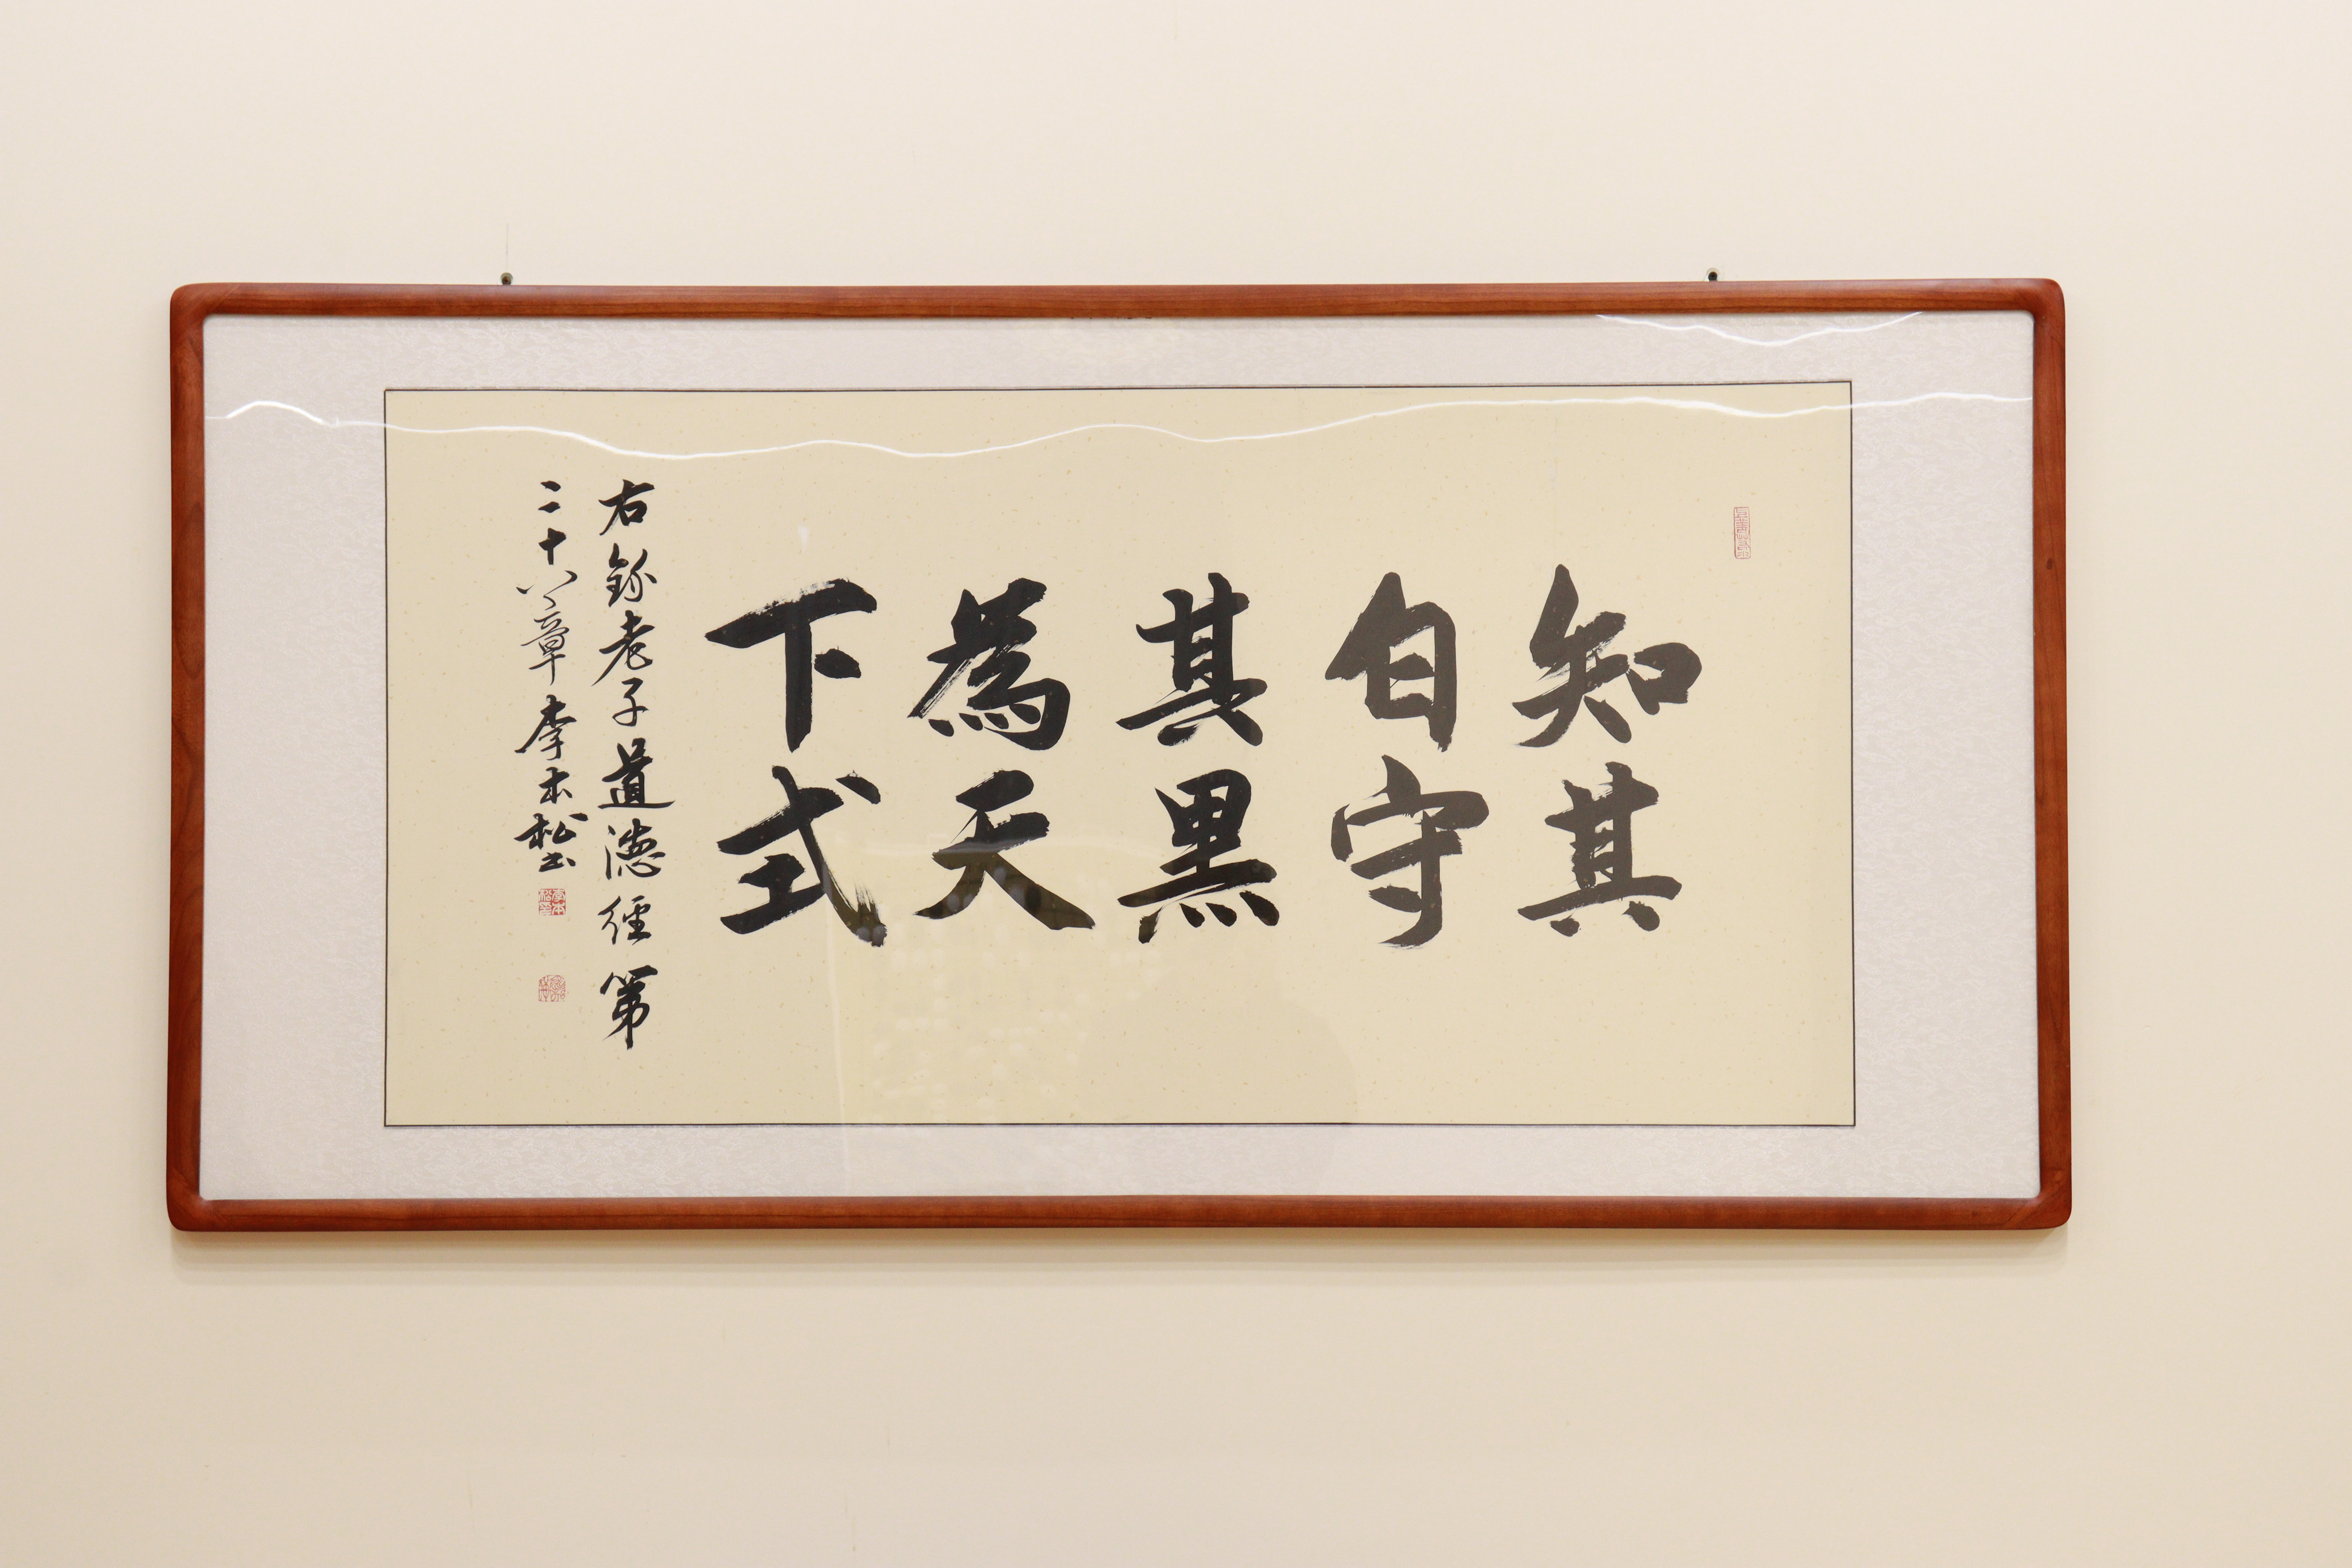 知其
白守
其黑
為天
下式
右錄老子道德經第
二十八章李本松書